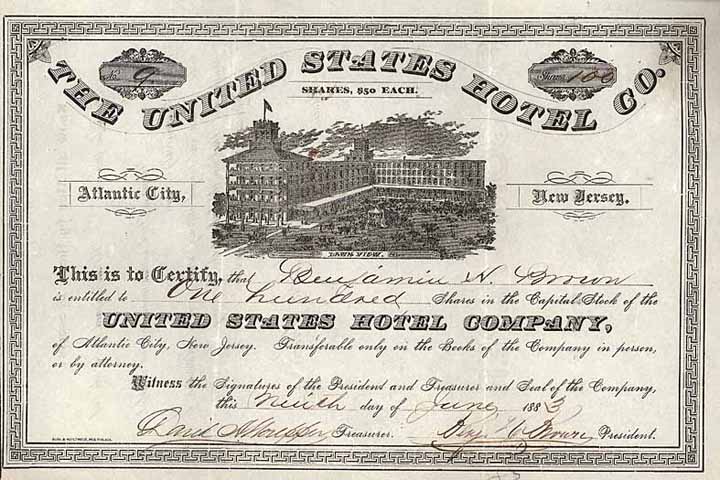 THE UNITED STATES HOTEL CO.
No. 9
Shares 100
SHARES, $50 EACH.
Atlantic City,
New Jersey.
LAWN VIEW.
This is to Certify, that Benjamin H. Brown
is entitled to One hundred Shares in the Capital Stock of the
UNITED STATES HOTEL COMPANY,
of Atlantic City, New Jersey. Transferable only on the Books of the Company in person,
or by attorney.
Witness the Signatures of the President and Treasurer and Seal of the Company,
this Ninth day of June, 1883
Treasurer.
Benj H Brown, President.